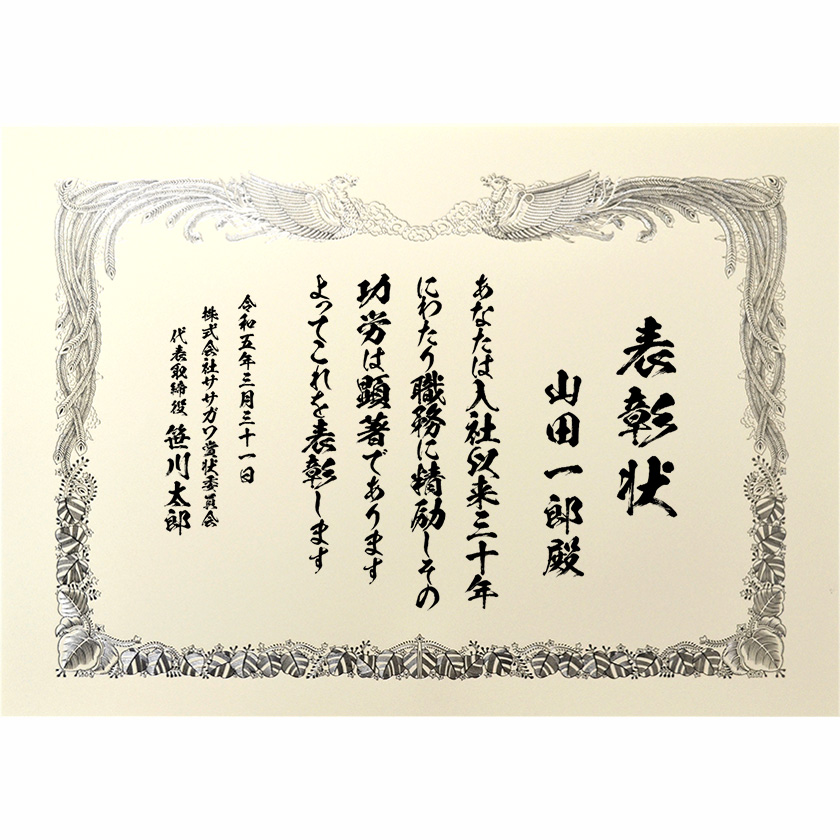 表彰状
山田一郎殿
あなたは入社以来三十年
にわたり職務に精励しその
功労は顕著であります
よってこれを表彰します
令和五年三月三十一日
株式会社ササガワ賞状委員会
代表取締役 笹川太郎